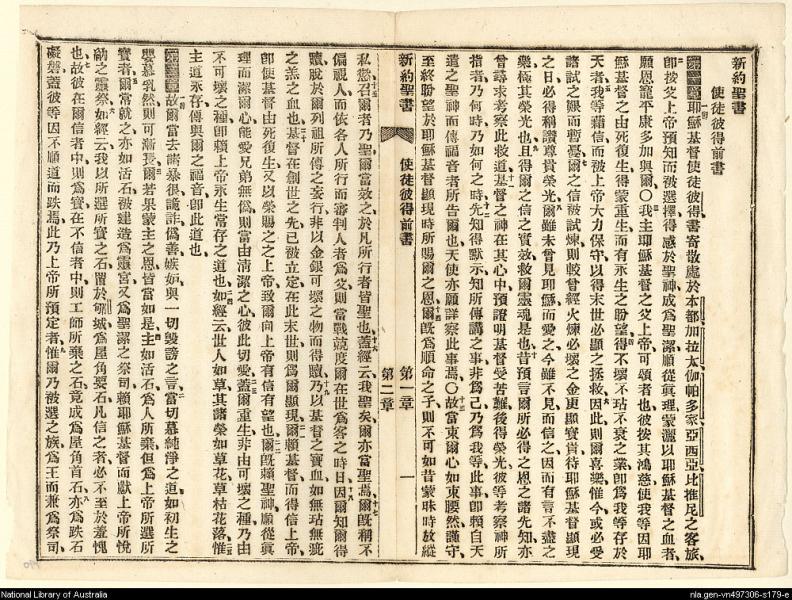 新約聖書
使徒彼得前書
耶穌基督使徒彼得書寄散處於本都加拉太伽帕多家亞西亞比推尼之客旅
卽按父上帝預知而被選擇得感於聖神成爲聖潔順從眞理蒙灑以耶穌基督之血者
願恩寵平康多加與爾〇我主耶穌基督之父上帝可頌者也彼按其鴻慈使我等因耶
穌基督之由死復生得蒙重生而有永生之盼望得不壞不玷不衰之業卽爲我等存於
天者我等藉信而被上帝大力保守以得末世必顯之拯救因此則爾喜樂惟今或必受
諸試之艱而暫憂爾之信被試煉則較曾經火煉必壞之金更顯寶貴待耶穌基督顯現
之日必得稱讚尊貴榮光爾雖未曾見耶穌而愛之今雖不見而信之因而有言不盡之
樂極其榮光也且得爾之信之實效救爾靈魂是也昔預言爾所必得之恩之諸先知亦
曾尋求考察此救道基督之神在其心中預證明基督受苦難後得榮光彼等考察神所
指者乃何時乃如何之時先知得默示知所傳講之事非爲己乃爲我等此事卽賴自天
遣之聖神而傳福音者所告爾也天使亦願詳察此事焉〇故當束爾心如束腰然謹守
至終盼望於耶穌基督顯現時所賜爾之恩爾旣爲順命之子則不可如昔蒙昧時放縱
新約聖書
使徒彼得前書
第一章
第二章
一
私慾召爾者乃聖爾當效之於凡所行者皆聖也蓋經云我聖矣爾亦當聖焉爾旣稱不
偏視人而依各人所行而審判人者爲父則當戰兢度爾在世爲客之時日因爾知爾得
贖脫於爾列祖所傳之妄行非以金銀可壞之物而得贖乃以基督之寶血如無玷無疵
之羔之血也基督在創世之先已被立定在此末世則爲爾顯現爾賴基督而得信上帝
卽使基督由死復生又以榮賜之之上帝致爾向上帝有信有望也爾旣賴聖神順從眞
理而潔爾心能愛兄弟無僞則當由清潔之心彼此切愛蓋爾重生非由可壞之種乃由
不可壞之種卽賴上帝永生常存之道也如經云世人如草其諸榮如草花草枯花落惟
主道永存傳與爾之福音卽此道也
故爾當去諸暴很詭詐僞善嫉妒與一切毀謗之言當切慕純淨之道如初生之
嬰慕乳然則可漸長爾若果蒙主之恩皆當如是主如活石爲人所棄但爲上帝所選所
寶者爾常就之亦如活石被建造爲靈宮又爲聖潔之祭司賴耶穌基督而獻上帝所悅
納之靈祭如經云我以所選所寶之石置於郇城爲屋角要石凡信之者必不至於羞愧
也故彼在爾信者中則爲寶在不信者中則工師所棄之石竟成爲屋角首石亦爲跌石
礙磐蓋彼等因不順道而跌焉此乃上帝所預定者惟爾乃被選之族爲王而兼爲祭司
National Library of Australia
nla.gen-vn497306-s179-e